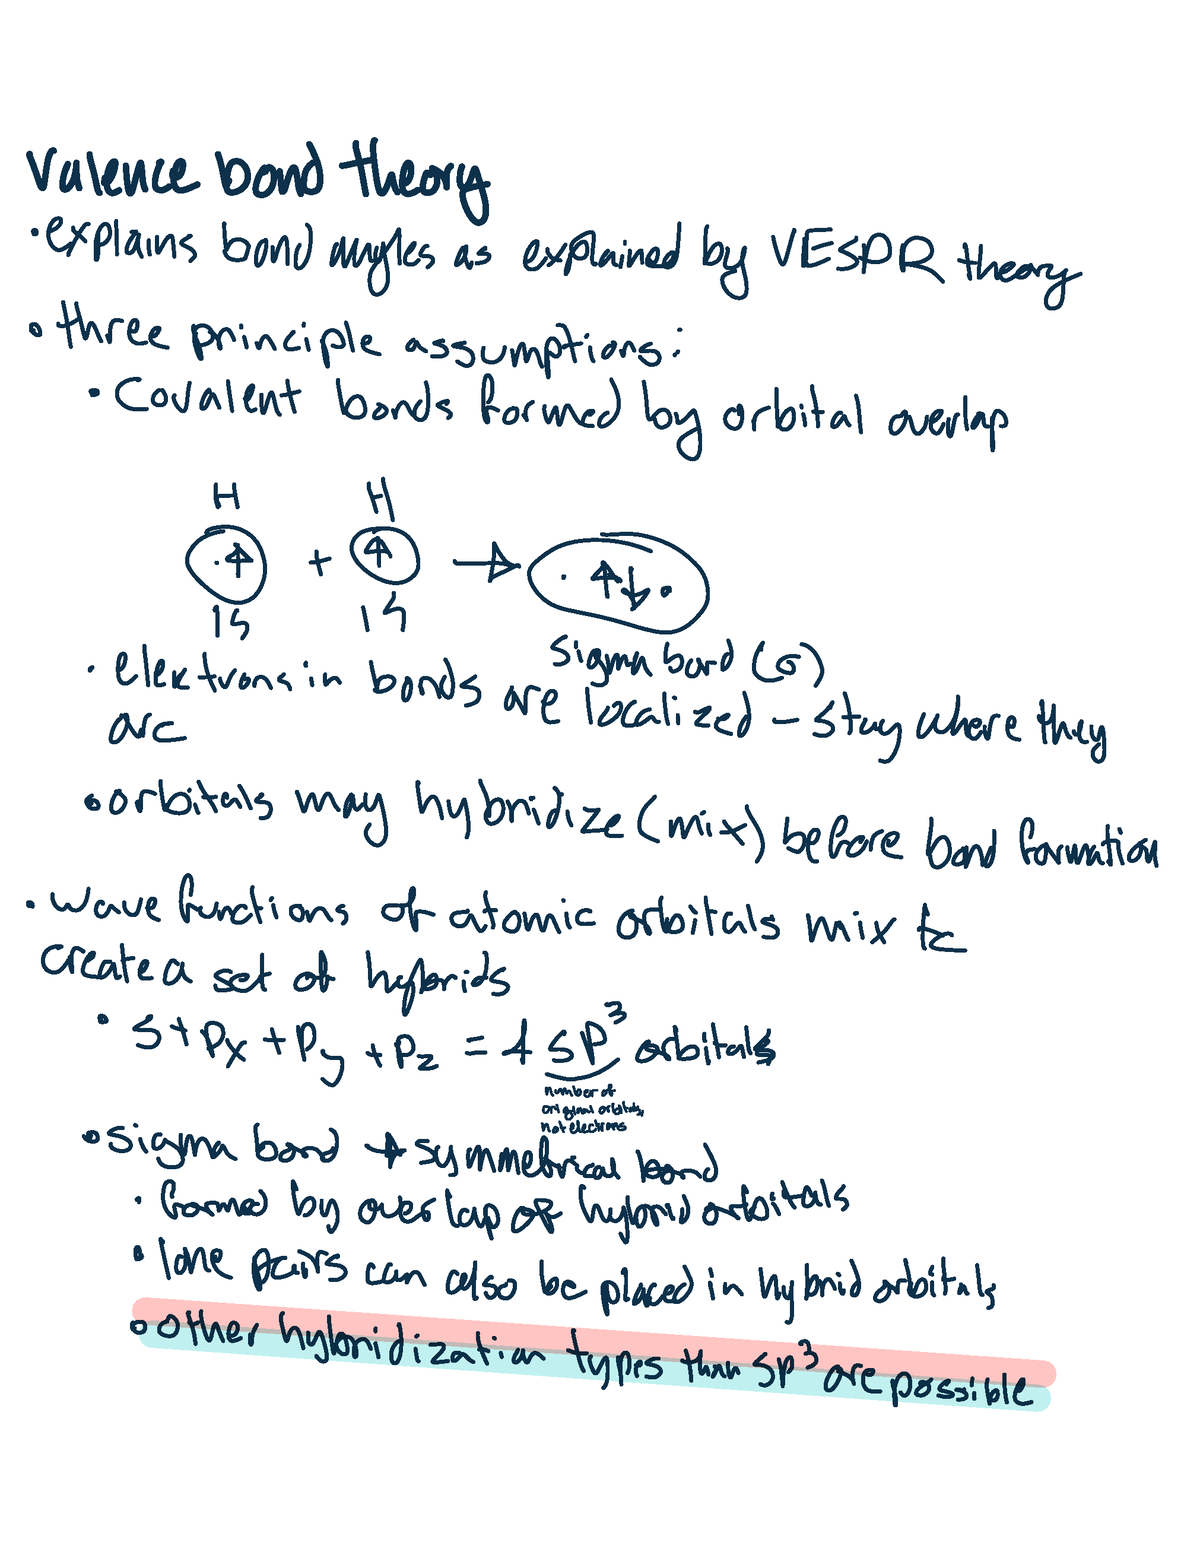 Valence bond theory
• explains bond angles as explained by VESPR theory
• three principle assumptions:
• Covalent bonds formed by orbital overlap
H H
↑ + ↑ → ↑↓
1s 1s
sigma bond (σ)
• elektrons in bonds are localized – stay where they
are
• orbitals may hybridize (mix) before bond formation
• wave functions of atomic orbitals mix to
create a set of hybrids
• s + Px + Py + Pz = 4 sp³ orbitals
number of
original orbitals,
not electrons
• sigma bond → symmetrical bond
• formed by overlap of hybrid orbitals
• lone pairs can also be placed in hybrid orbitals
• other hybridization types than sp³ are possible